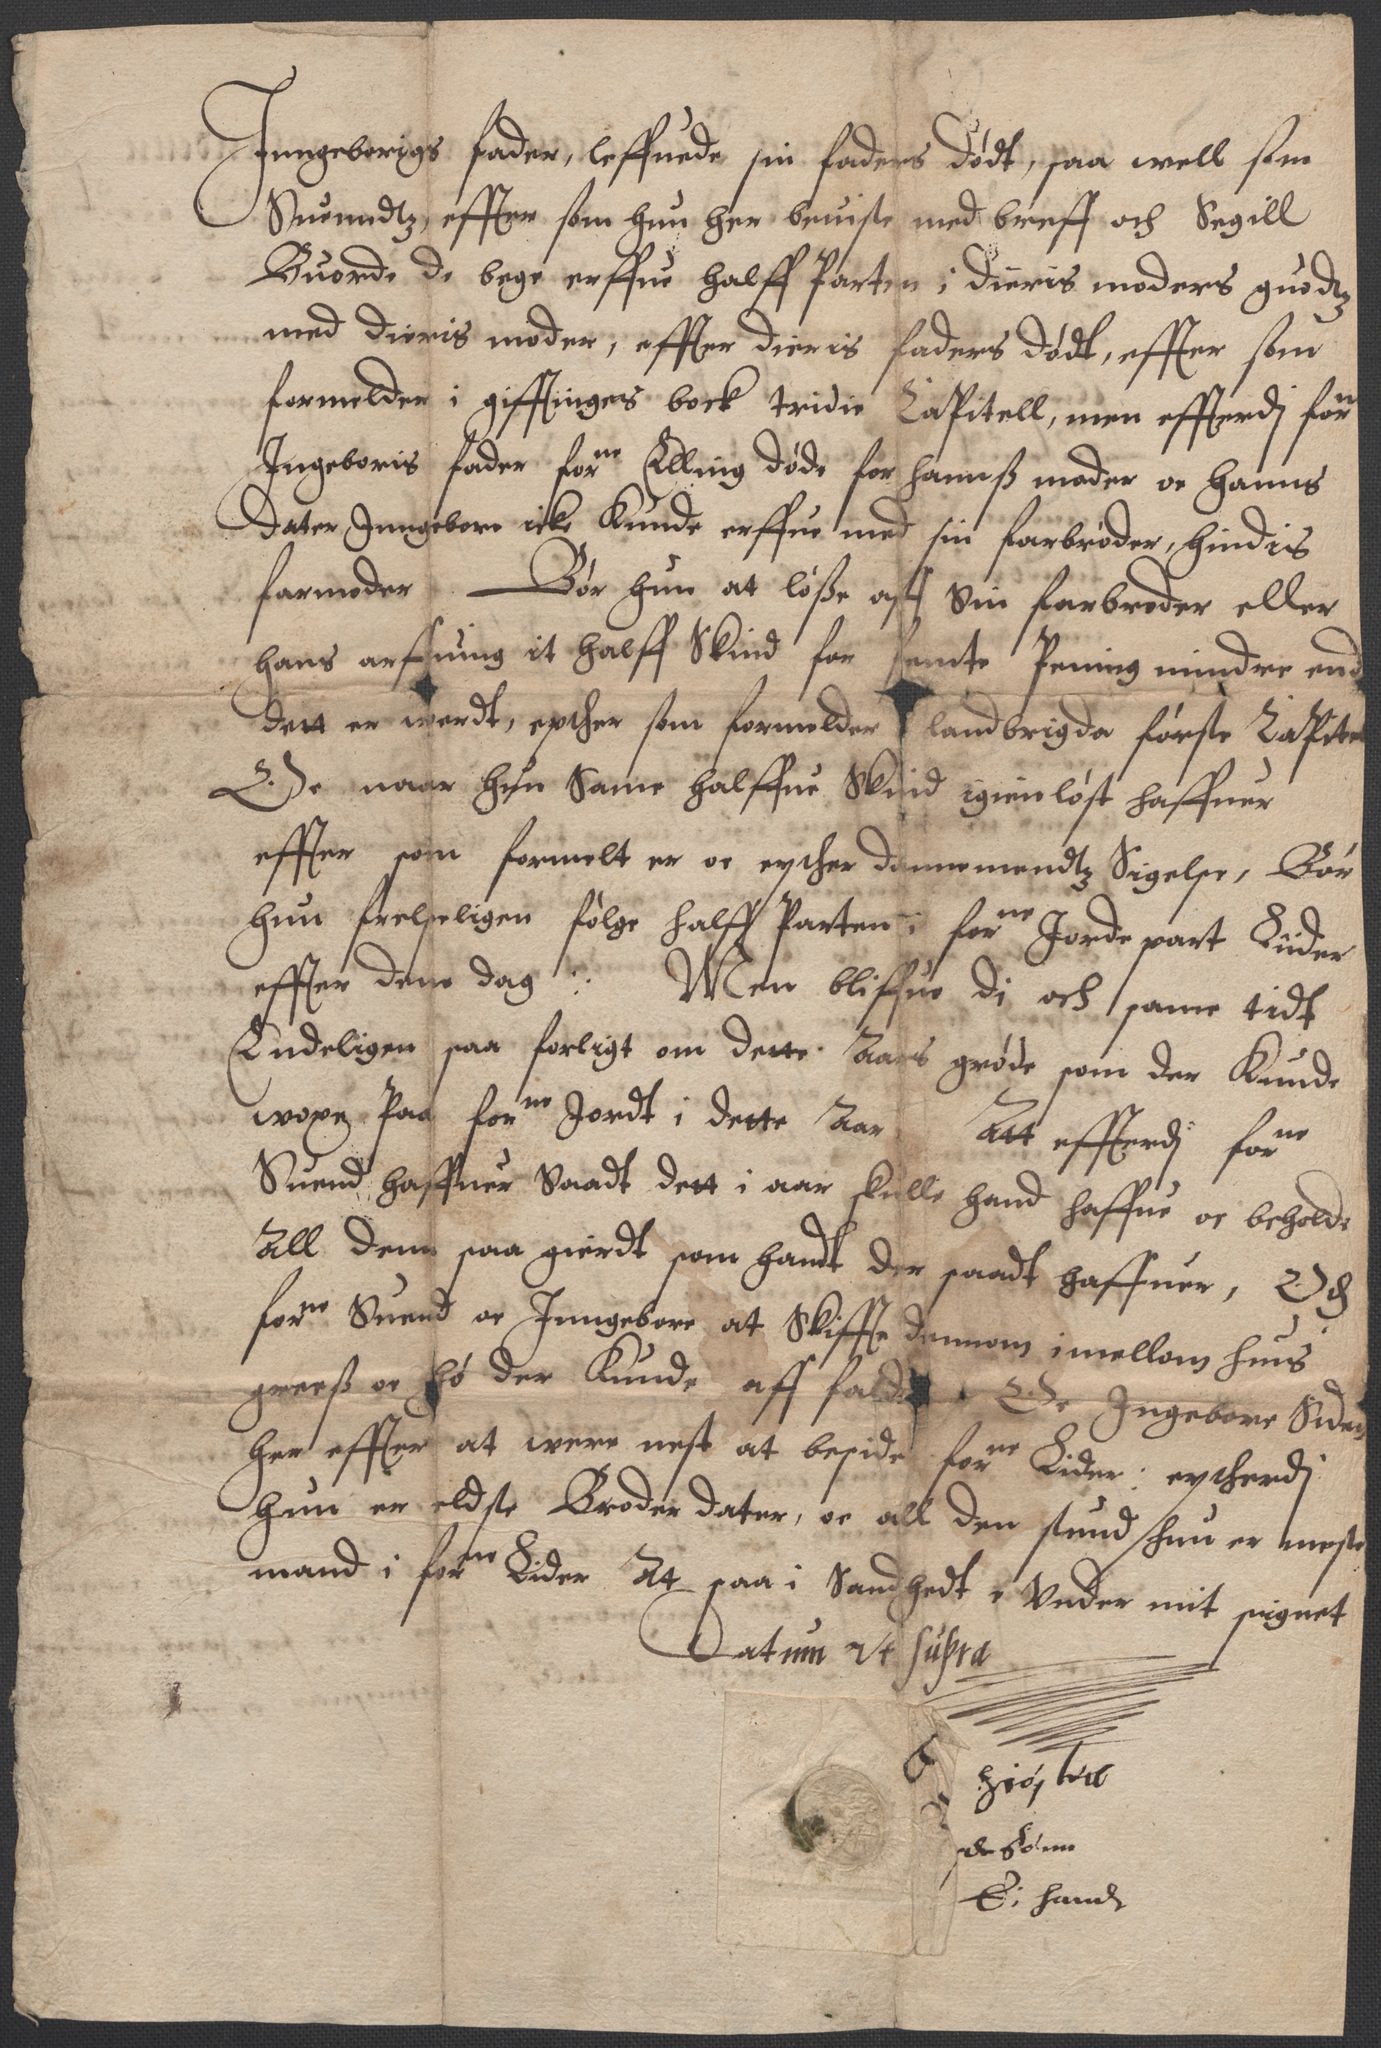 Inngeborigs fader, leffuede sin faders dødt, saa well som
Suenndtz, effter som hun her beuiste med breff och Segill
Buorde de bege erffue halff Parten i dieris moders guodtz
med dieris moder, effter dieris faders dødt, effter som
formelder i gifftinges bock tridie Capitell, men effterdj forne
Ingeboris fader forne Elling døde for hannß moder oc hanns
dater Inngebore icke kunde erffue med sin farbroder, hindis
farmoder Bør hun at løße aff Sin farbroder eller
hans arffuing it halff Skind for femte Pening mindre end
dett er werdt, epther som formelder landbrigda første Capitel
Oc naar hun Same halffue Skind igien løst haffuer
effter som formelt er oc epther dannemendtz Sigelse, Bør
hun frelseligen følge halff Parten i forne Jorde part Lider
effter denne dag :. Men bliffue di och same tidt
Endeligen saa forligt om dette Aars grøde som der kunde
woxe paa forne Jordt i dette Aar Att effterdj forne
Suend haffuer Saadt dett i aar skulle hand haffue oc beholde
All denn saa gierdt som handt der saadt haffuer, Och
forne Suend oc Inngebore at Skiffte dennom imellom huis
greeß oc hø der kunde aff falde. Oc Ingebore Siden
her effter at were nest at beside forne Lider: eptherdj
hun er eldste Broder dater, oc all den stund hun er meste
mand i forne Lider At saa i Sandhedt er Vnder mit signet
Datum Vt supra
E: handt